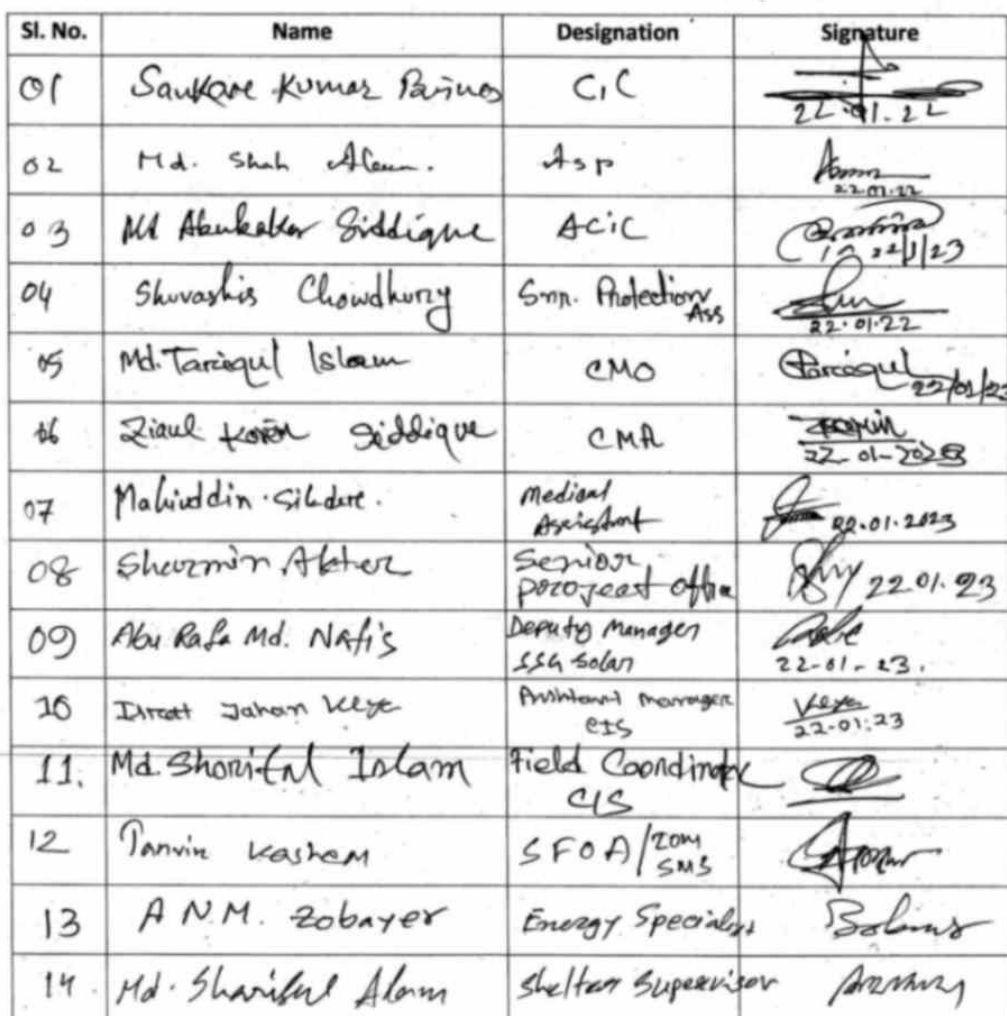 Sl. No. Name Designation Signature
01 Sankar Kumar CiC
22.01.22
02 Md. Shah Alam. Asp
22.01.22
03 Md Abubakar Siddique ACiC
22/1/23
04 Shuvashis Chowdhury Snr. Protection
Ass
22.01.22
05 Md. Tariqul Islam CMO Tariqul
22/01/23
06 Ziaul Karim Siddique CMA
22-01-2023
07 Mahiuddin Sikder. Medical
Assistant 22.01.2023
08 Sharmin Akter Senior
project office 22.01.23
09 Abu Rafa Md. Nafis Deputy Manager
SSG Solar
22-01-23.
10 Israt Jahan Keya Assistant Manager Keya
CIS 22-01.23
11. Md. Shoriful Islam Field Coordinator
CIS
12 Tanvir Kashem SFOA/ZOM
SMS
13 A N.M. Zobayer Energy Specialist
14 Md. Shariful Alam Shelter Supervisor